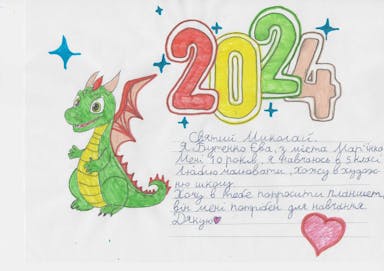 2024
Святий Миколай.
Я Бученко Ева, з міста Мар'їнка
Мені 10 років, я навчаюсь в 5 класі,
Люблю малювати, хожу в художню
школу.
Хочу в тебе попросити планшет,
він мені потрібен для навчання
Дякую